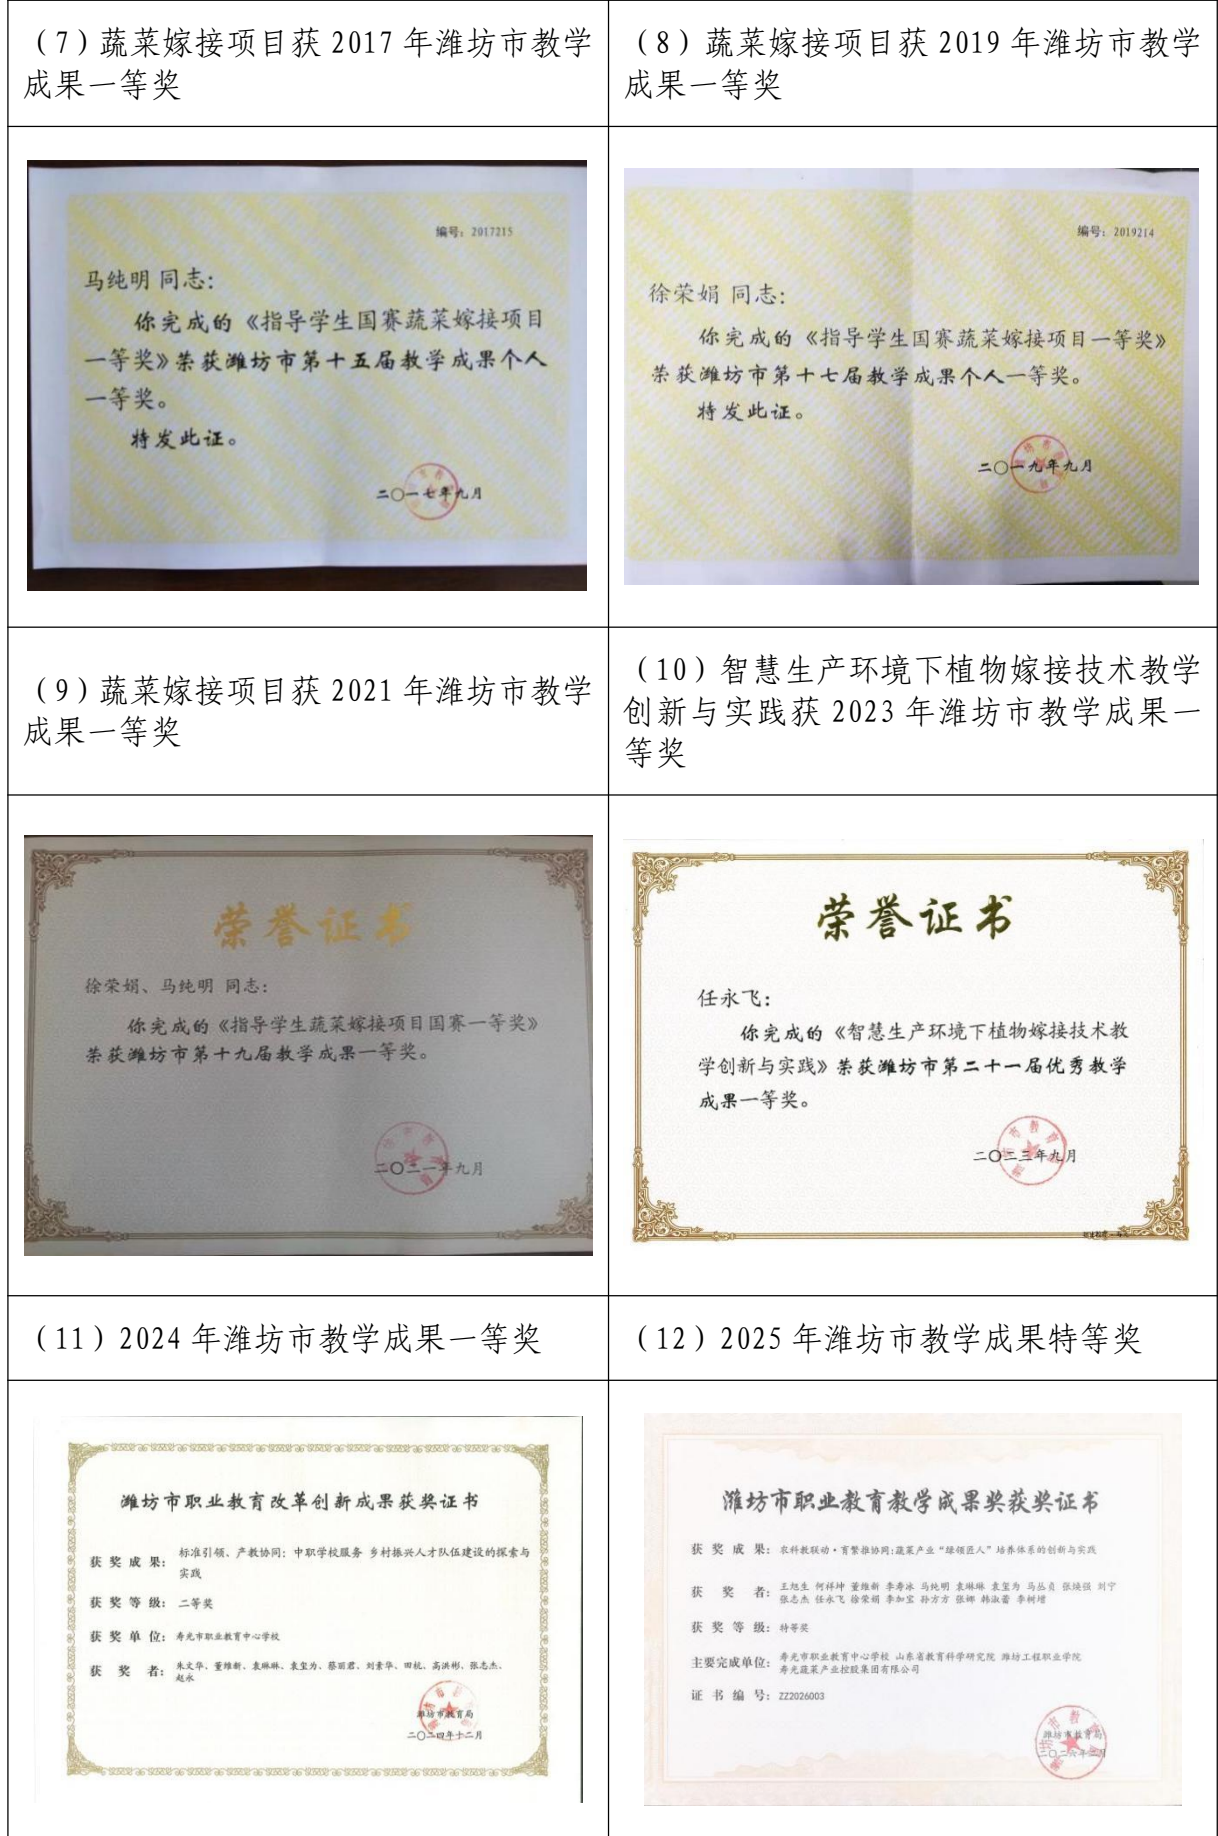 （7）蔬菜嫁接项目获 2017 年潍坊市教学
成果一等奖
（8）蔬菜嫁接项目获 2019 年潍坊市教学
成果一等奖
编号：2017215
马纯明 同志：
你完成的《指导学生国赛蔬菜嫁接项目
一等奖》荣获潍坊市第十五届教学成果个人
一等奖。
特发此证。
二〇一七年九月
编号：2019214
徐荣娟 同志：
你完成的《指导学生国赛蔬菜嫁接项目一等奖》
荣获潍坊市第十七届教学成果个人一等奖。
特发此证。
二〇一九年九月
（9）蔬菜嫁接项目获 2021 年潍坊市教学
成果一等奖
（10）智慧生产环境下植物嫁接技术教学
创新与实践获 2023 年潍坊市教学成果一
等奖
荣誉证书
徐荣娟、马纯明 同志：
你完成的《指导学生蔬菜嫁接项目国赛一等奖》
荣获潍坊市第十九届教学成果一等奖。
二〇二一年九月
荣誉证书
任永飞：
你完成的《智慧生产环境下植物嫁接技术教
学创新与实践》荣获潍坊市第二十一届优秀教学
成果一等奖。
二〇二三年九月
（11）2024 年潍坊市教学成果一等奖
（12）2025 年潍坊市教学成果特等奖
潍坊市职业教育改革创新成果获奖证书
获奖成果：标准引领、产教协同：中职学校服务 乡村振兴人才队伍建设的探索与
实践
获奖等级：二等奖
获奖单位：寿光市职业教育中心学校
获奖者：朱文华、董维新、袁琳琳、袁玺为、蔡丽君、刘素华、田杭、高洪彬、张志杰、
赵永
潍坊市教育局
二〇二四年十二月
潍坊市职业教育教学成果奖获奖证书
获奖成果：农科教联动·育繁推协同：蔬菜产业“绿领匠人”培养体系的创新与实践
获奖者：王旭生 何祥坤 董维新 李寿冰 马纯明 袁琳琳 袁玺为 马丛贞 张焕强 刘宁
张志杰 任永飞 徐荣娟 李加宝 孙方方 张娜 韩淑蕾 李树增
获奖等级：特等奖
主要完成单位：寿光市职业教育中心学校 山东省教育科学研究院 潍坊工程职业学院
寿光蔬菜产业控股集团有限公司
证书编号：ZZ2026003
潍坊市教育局